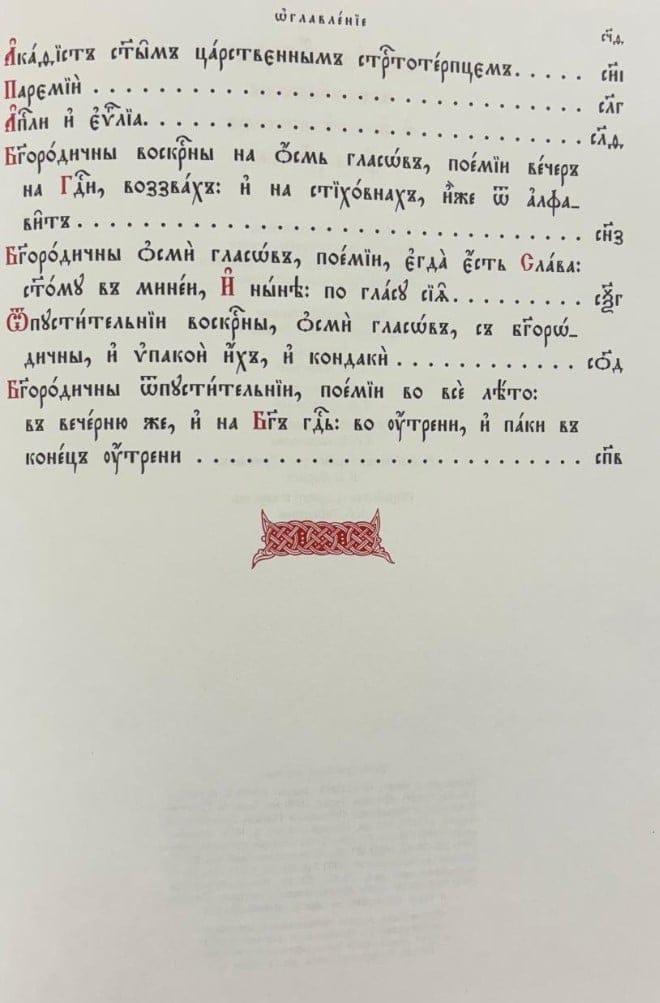 Ѡ҆главле́нїе
сч҃д.
А҆ка́ѳїстъ ст҃ы̑мъ ца́рственнымъ стрⷭ҇тоте́рпцємъ..... сн҃і
Парємїи̑ .............................. сл҃г
А҆пⷭ҇ли и҆ є҆ѵⷢ҇лїа.......................... сл҃д.
Бг҃оро́дичны воскрⷭ҇ны на ѻ҆́смь гласѡ́въ, пое́мїи ве́черъ
на Гдⷭ҇и, воззва́хъ: и҆ на стїхо́внахъ, и҆̀же ѿ а҆лфа-
ви́тъ .............................. сн҃з
Бг҃оро́дичны ѻ҆сми́ гласѡ́въ, пое́мїи, є҆гда̀ є҆́сть Сла́ва:
ст҃о́мꙋ въ мине́и, И҆ ны́нѣ: по гла́сꙋ сїѧ̑......... сѯ҃г
Ѿпꙋсти́тельнїи воскрⷭ҇ны, ѻ҆сми́ гласѡ́въ, съ бг҃орѡ́-
дичны, и҆ ѵ҆пакои̑ и҆́хъ, и҆ кондаки̑ ............ со҃д
Бг҃оро́дичны ѿпꙋсти́тельнїи, пое́мїи во всѐ лѣ́то:
въ вече́рню же, и҆ на Бг҃ъ гдⷭ҇ь: во ᲂу҆́трени, и҆ па́ки въ
коне́цъ ᲂу҆́трени .......................... сп҃в